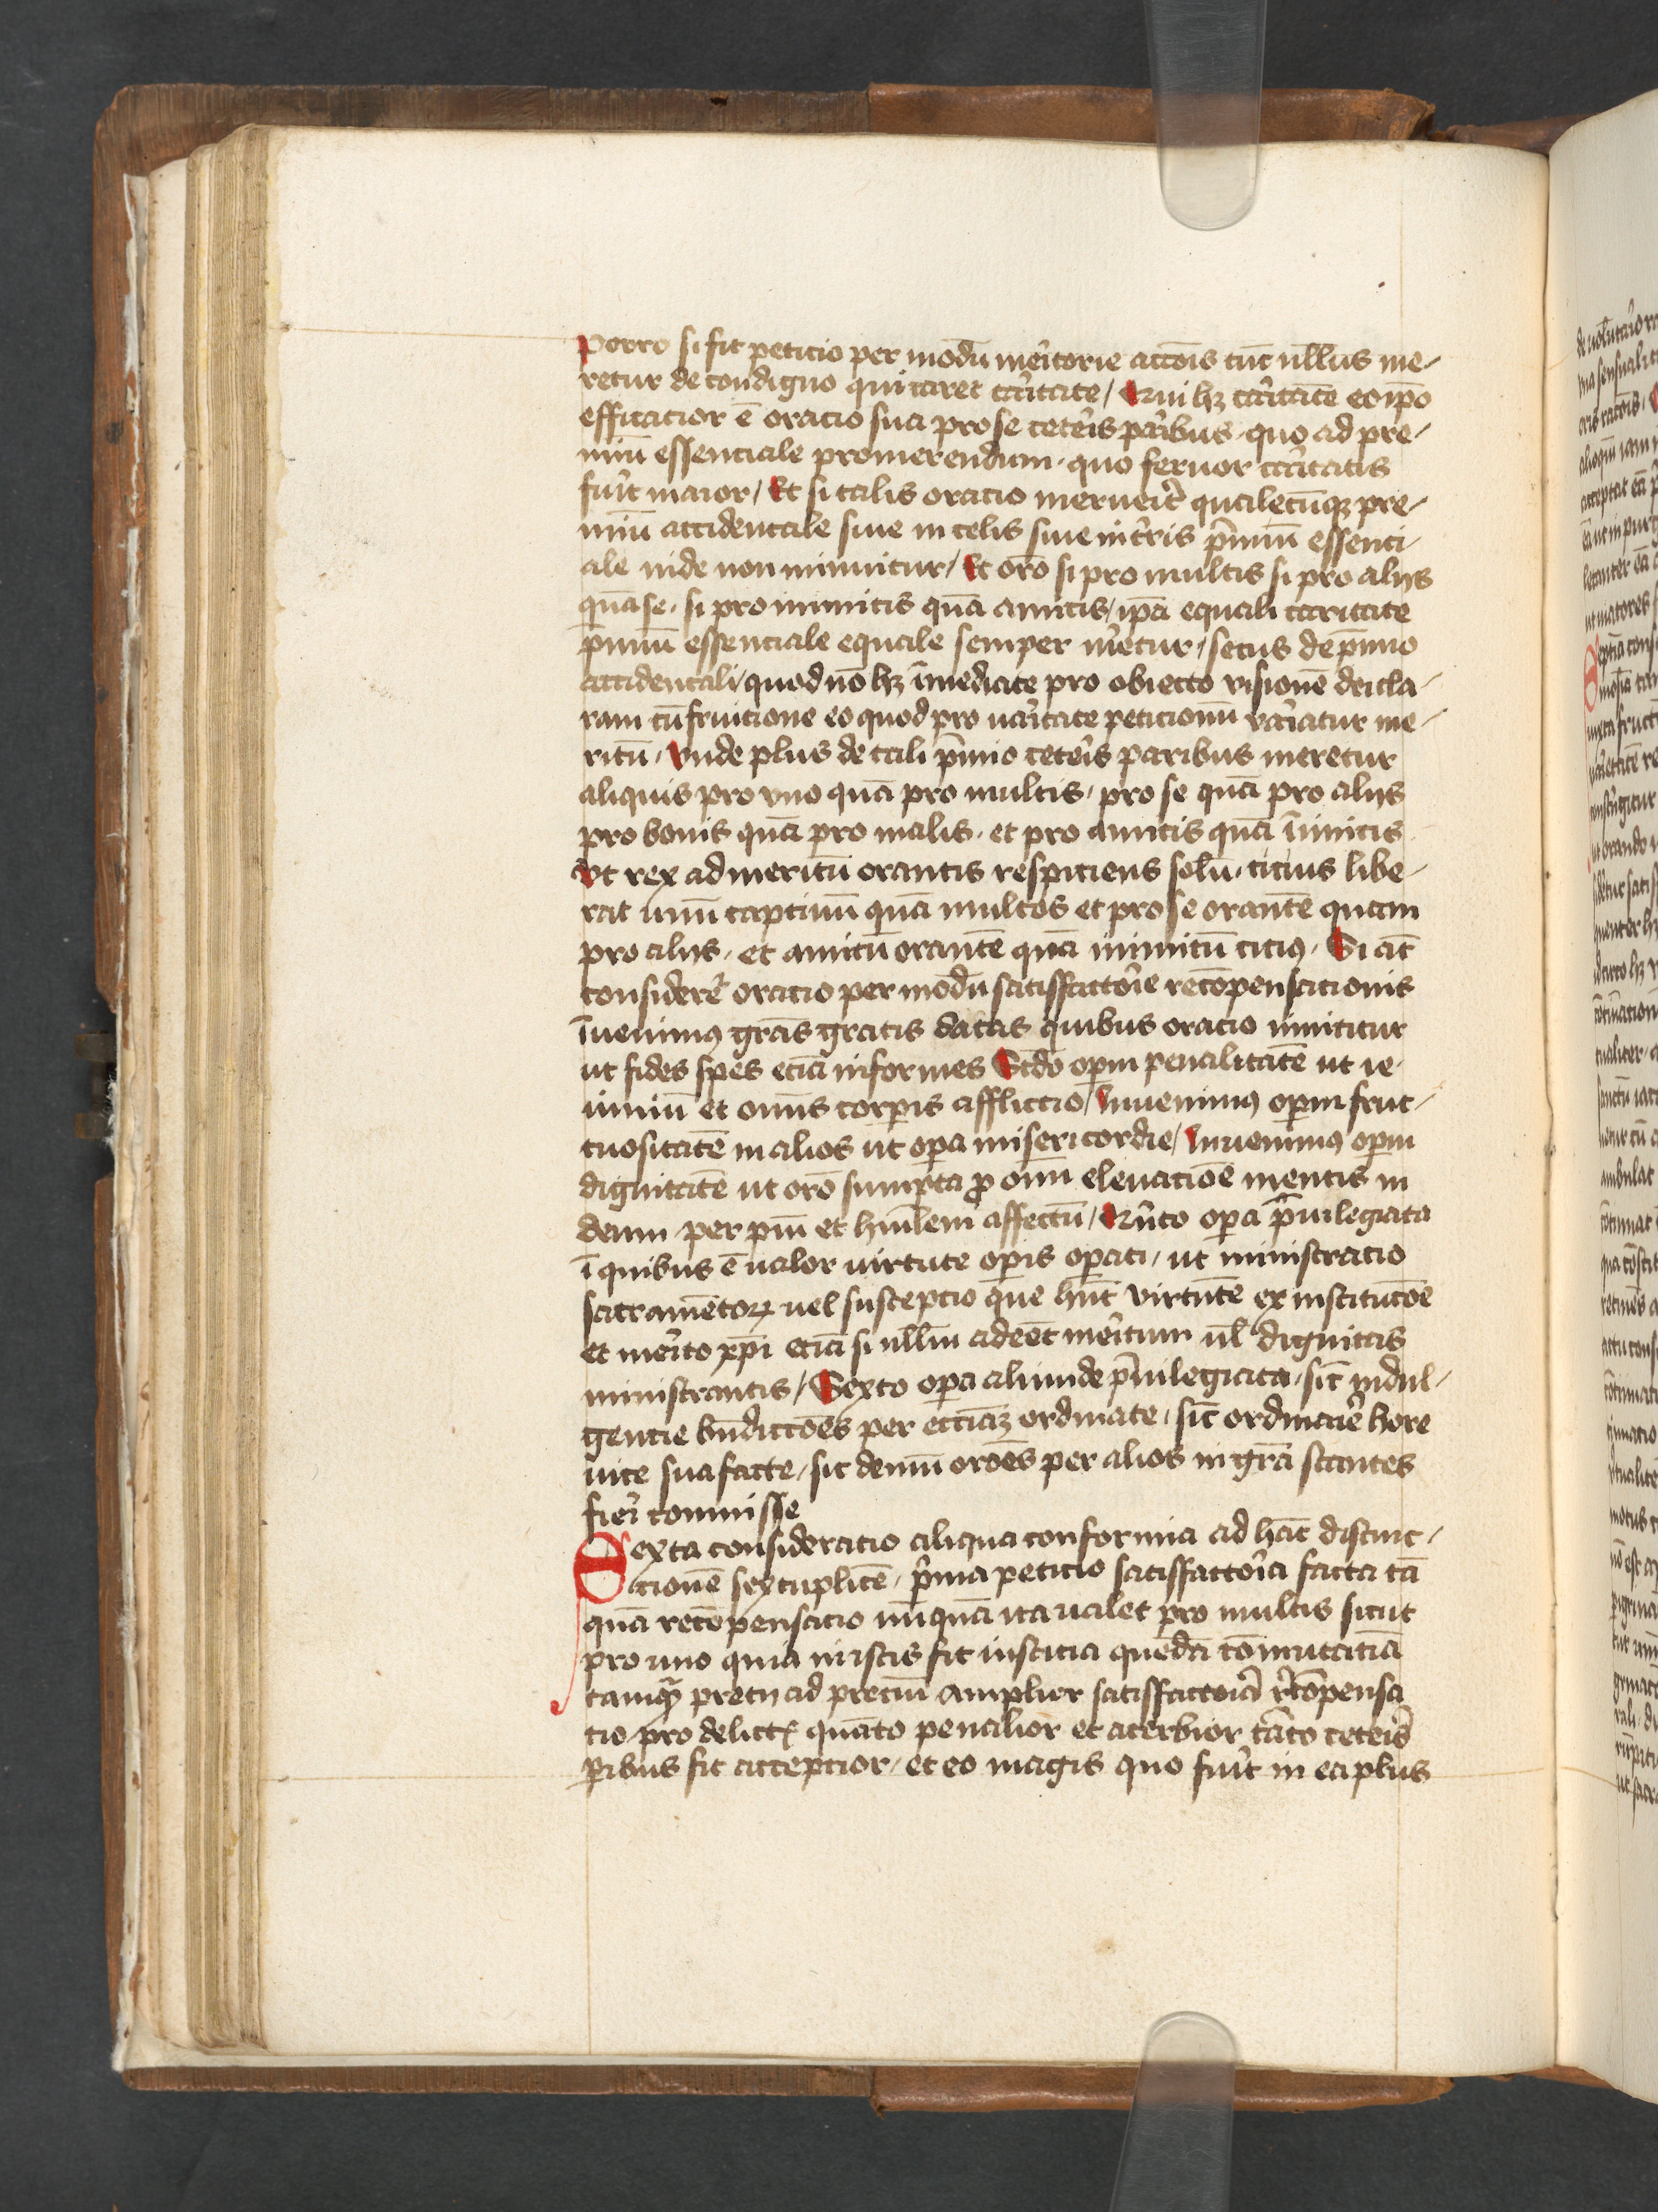 Porro si fit peticio per modū meritorie accōis tūc nullus me-
retur de condigno qui caret caritate / Qui hꝫ caritatē eo ipō
efficacior ē oracio sua pro se ceteris paribus quo ad pre-
miū essenciale promerendum quo feruor caritatis
fuit maior / Et si talis oracio meruerit qualecūqꝫ pre-
miū accidentale siue in celis siue in tris p̄miū essenci-
ale inde non minuitur / Et orō si pro multis si pro alijs
quā se. si pro inimicis quā amicis / ipā equali caritate
p̄miū essenciale equale semper meretur / secus de p̄mio
accidentali / quod nō hꝫ īmediate pro obiecto visionē dei cla-
ram cū fruicione eo quod pro uarietate peticionū variatur me-
ritū / Vnde plus de tali p̄mio ceteris paribus meretur
aliquis pro vno quā pro multis / pro se quā pro alijs
pro bonis quā pro malis. et pro amicis quā īimicis
Vt rex ad meritū orantis respiciens solū. cicius libe-
rat unū captiuū quā multos et pro se orantē quam
pro alijs. et amicū orantē quā inimicū cicius. Si aūt
considere oracio per modū satisffactorie recōpensacionis
īuenimꝰ gr̄as gratis datas quibus oracio innititur
ut fides spes eciā informes Scdo opm penalitatē ut ie-
iuniū et omīs corpis afflictio / Inuenimꝰ opm fruc-
tuositatē in alios ut opa misericordie / Inuenimꝰ opm
dignitatē ut orō sumpta pro omi eleuacioē mentis in
deum per piū et humilem affectū / Quito opa p̄uilegiata
ī quibus ē ualor uirtute opis opati / ut ministracio
sacramētoꝝ uel suscepcio que hnt virtutē ex institucōe
et merito xp̄i eciā si ullum adeēt meritum ul dignitas
ministrantis / Sexto opa aliunde p̄uilegiata. sic indul-
gencie bn̄dictōes per ecciāꝫ ordinate. sic ordinarie hore
uice sua facte / sic demū orōes per alios in gr̄a stantes
fieri commisse
Sexta consideratio aliqua conformia ad hāc distinc-
tionē sextuplicē. prima peticio satisffactoria facta tā
quā recōpensacio nunquā ita ualet pro multis sicut
pro uno quia in istis fit iusticia quedā cōmutatiua
tamqꝫ precij ad preciū Amplior satisffactoria recōpensa
cio / pro delictꝭ quāto penalior et acerbior tāto ceteris
paribus fit accepcior / et eo magis quo fuit in ea plus